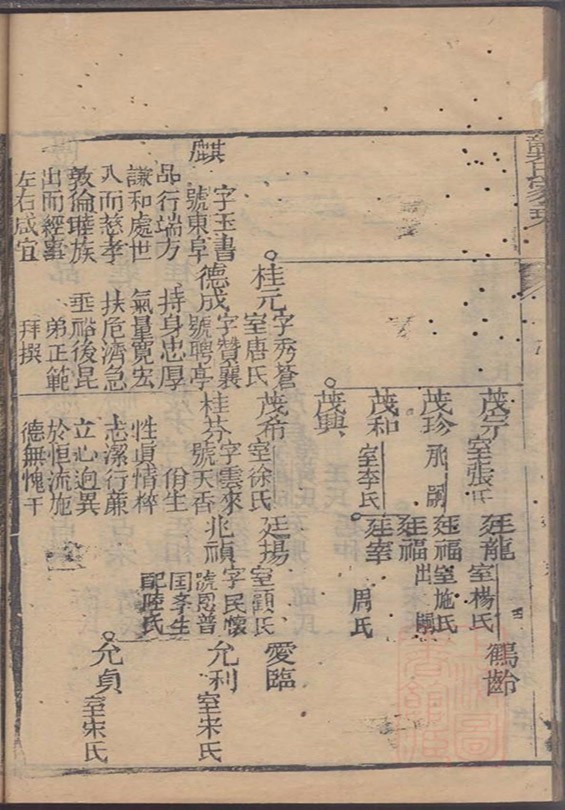 茂宇 室張氏 廷龍 室楊氏 鶴齡
茂珍 廷福 室施氏
廷福 出嗣
茂和 室李氏 廷奉 周氏
茂興
桂元 字秀蒼 室唐氏 茂希 室徐氏 廷揚 室顧氏 愛臨
麒 字玉書 號東阜
德成 字贊襄 號聘亭
桂芬 字雲來 號天香
兆禎 字民懷 號恩普
允利 室宋氏
品行端方 持身忠厚
謙和處世 氣量寬宏
入而慈孝 扶危濟急
敦倫睦族 垂裕後昆
出而經事 弟正範
左右咸宜 拜撰
性貞情粹
志潔行廉
立心迥異
於恒流施
德無愧于
配陸氏
允貞 室宋氏